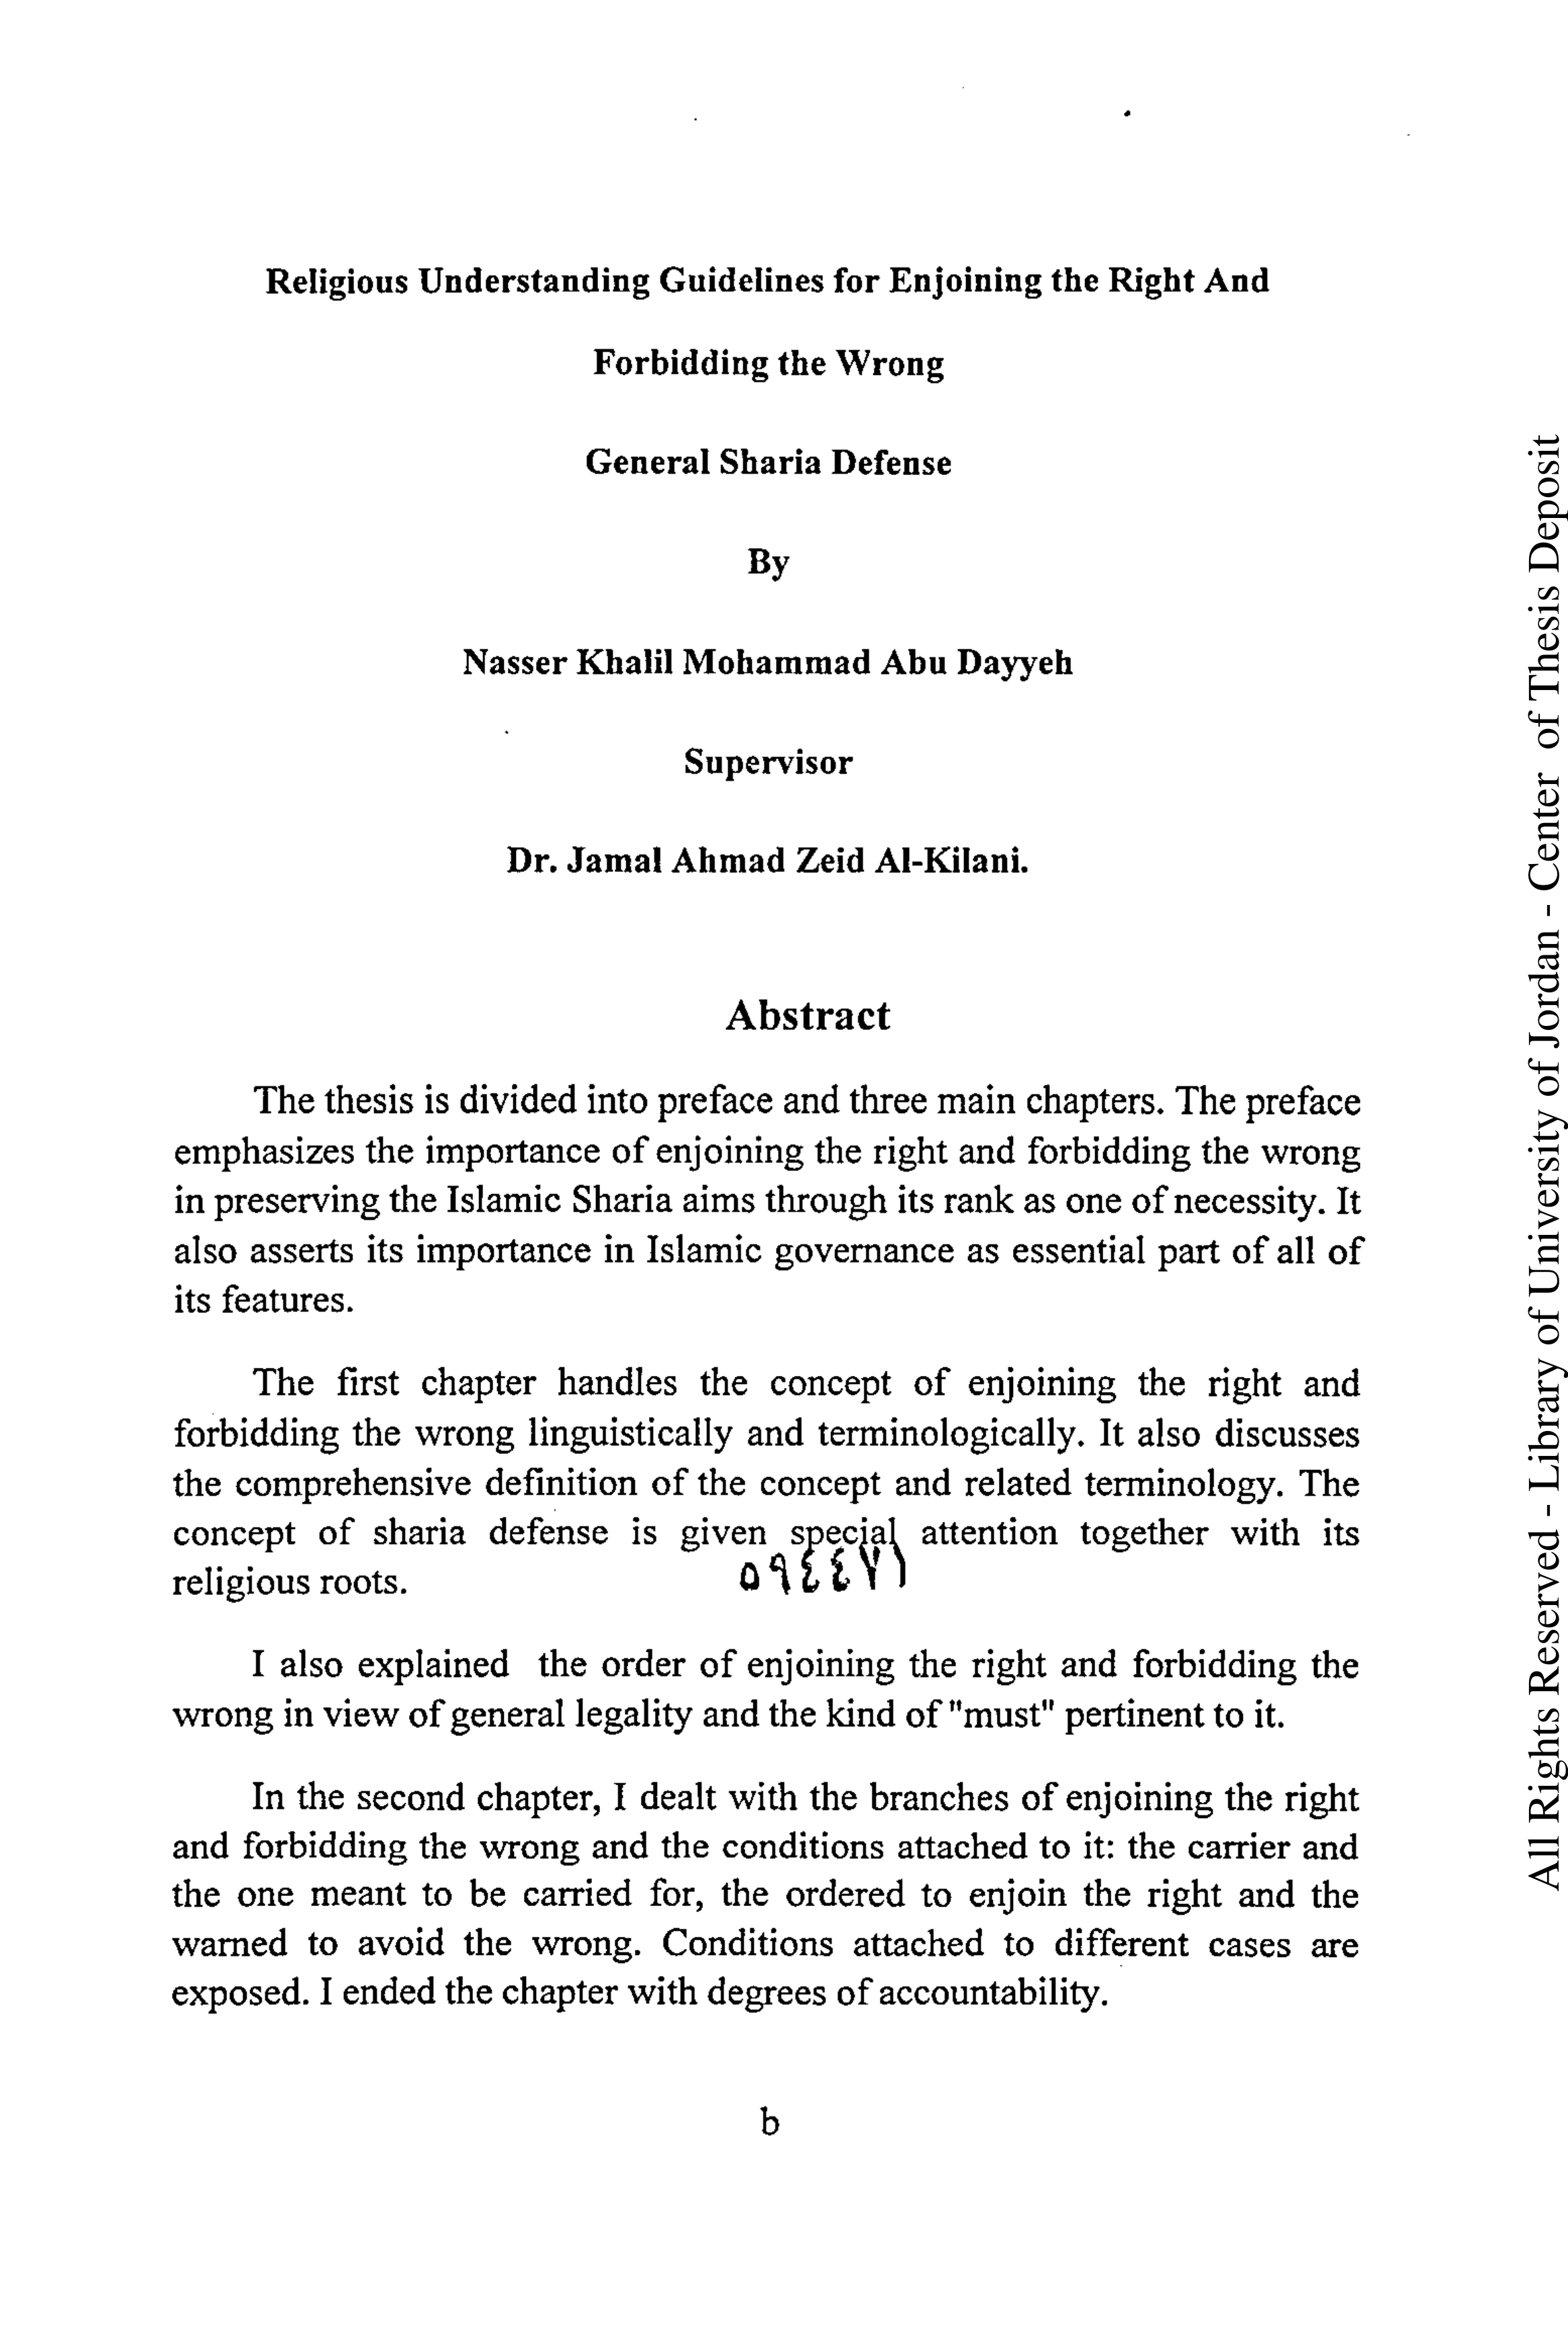 Religious Understanding Guidelines for Enjoining the Right And
Forbidding the Wrong
General Sharia Defense
By
Nasser Khalil Mohammad Abu Dayyeh
Supervisor
Dr. Jamal Ahmad Zeid Al-Kilani.
Abstract
The thesis is divided into preface and three main chapters. The preface
emphasizes the importance of enjoining the right and forbidding the wrong
in preserving the Islamic Sharia aims through its rank as one of necessity. It
also asserts its importance in Islamic governance as essential part of all of
its features.
The first chapter handles the concept of enjoining the right and
forbidding the wrong linguistically and terminologically. It also discusses
the comprehensive definition of the concept and related terminology. The
concept of sharia defense is given special attention together with its
religious roots.
٥٩٤٤٧١
I also explained the order of enjoining the right and forbidding the
wrong in view of general legality and the kind of "must" pertinent to it.
In the second chapter, I dealt with the branches of enjoining the right
and forbidding the wrong and the conditions attached to it: the carrier and
the one meant to be carried for, the ordered to enjoin the right and the
warned to avoid the wrong. Conditions attached to different cases are
exposed. I ended the chapter with degrees of accountability.
b
All Rights Reserved - Library of University of Jordan - Center of Thesis Deposit